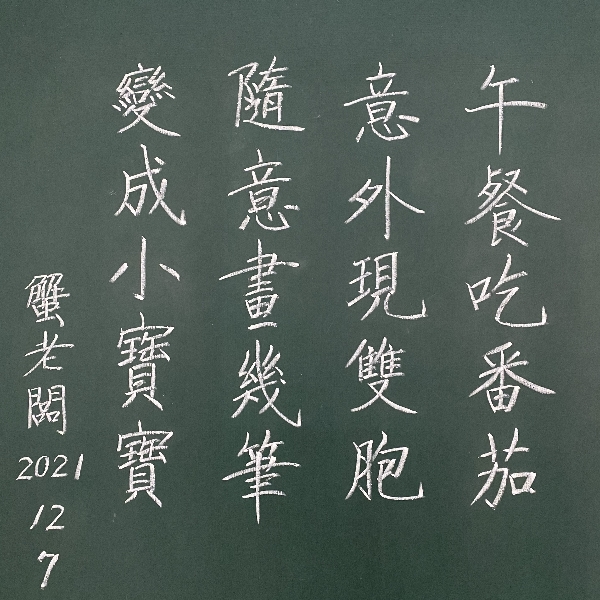 午餐吃番茄
意外現雙胞
隨意畫幾筆
變成小寶寶
蟹老闆
2021
12
7